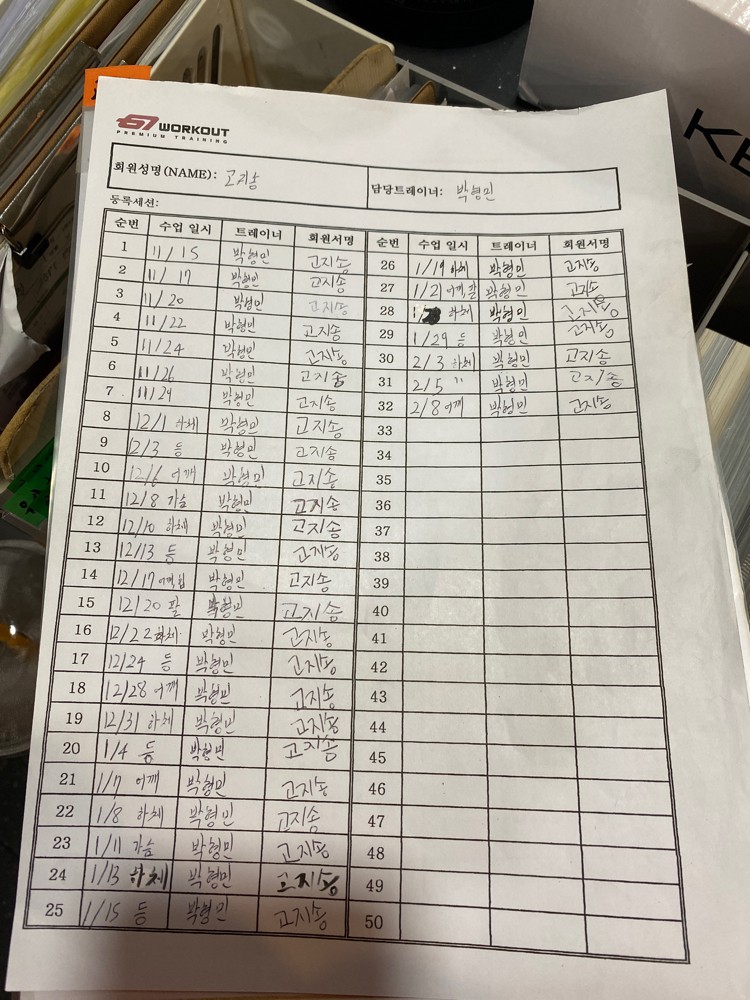 67 WORKOUT
PREMIUM TRAINING
회원성명(NAME): 고지송 담당트레이너: 박형민
등록세션:
순번 수업 일시 트레이너 회원서명 순번 수업 일시 트레이너 회원서명
1 11/15 박형민 고지송 26 1/19 하체 박형민 고지송
2 11/17 박형민 고지송 27 1/21 어깨,팔 박형민 고지송
3 11/20 박형민 고지송 28 하체 박형민 고지송
4 11/22 박형민 고지송 29 1/29 등 박형민 고지송
5 11/24 박형민 고지송 30 2/3 하체 박형민 고지송
6 11/26 박형민 고지송 31 2/5 〃 박형민 고지송
7 11/29 박형민 고지송 32 2/8 어깨 박형민 고지송
8 12/1 하체 박형민 고지송 33
9 12/3 등 박형민 고지송 34
10 12/6 어깨 박형민 고지송 35
11 12/8 가슴 박형민 고지송 36
12 12/10 하체 박형민 고지송 37
13 12/13 등 박형민 고지송 38
14 12/17 박형민 고지송 39
15 12/20 팔 박형민 고지송 40
16 12/22 하체 박형민 고지송 41
17 12/24 등 박형민 고지송 42
18 12/28 어깨 박형민 고지송 43
19 12/31 하체 박형민 고지송 44
20 1/4 등 박형민 고지송 45
21 1/7 어깨 박형민 고지송 46
22 1/8 하체 박형민 고지송 47
23 1/11 가슴 박형민 고지송 48
24 1/13 하체 박형민 고지송 49
25 1/15 등 박형민 고지송 50